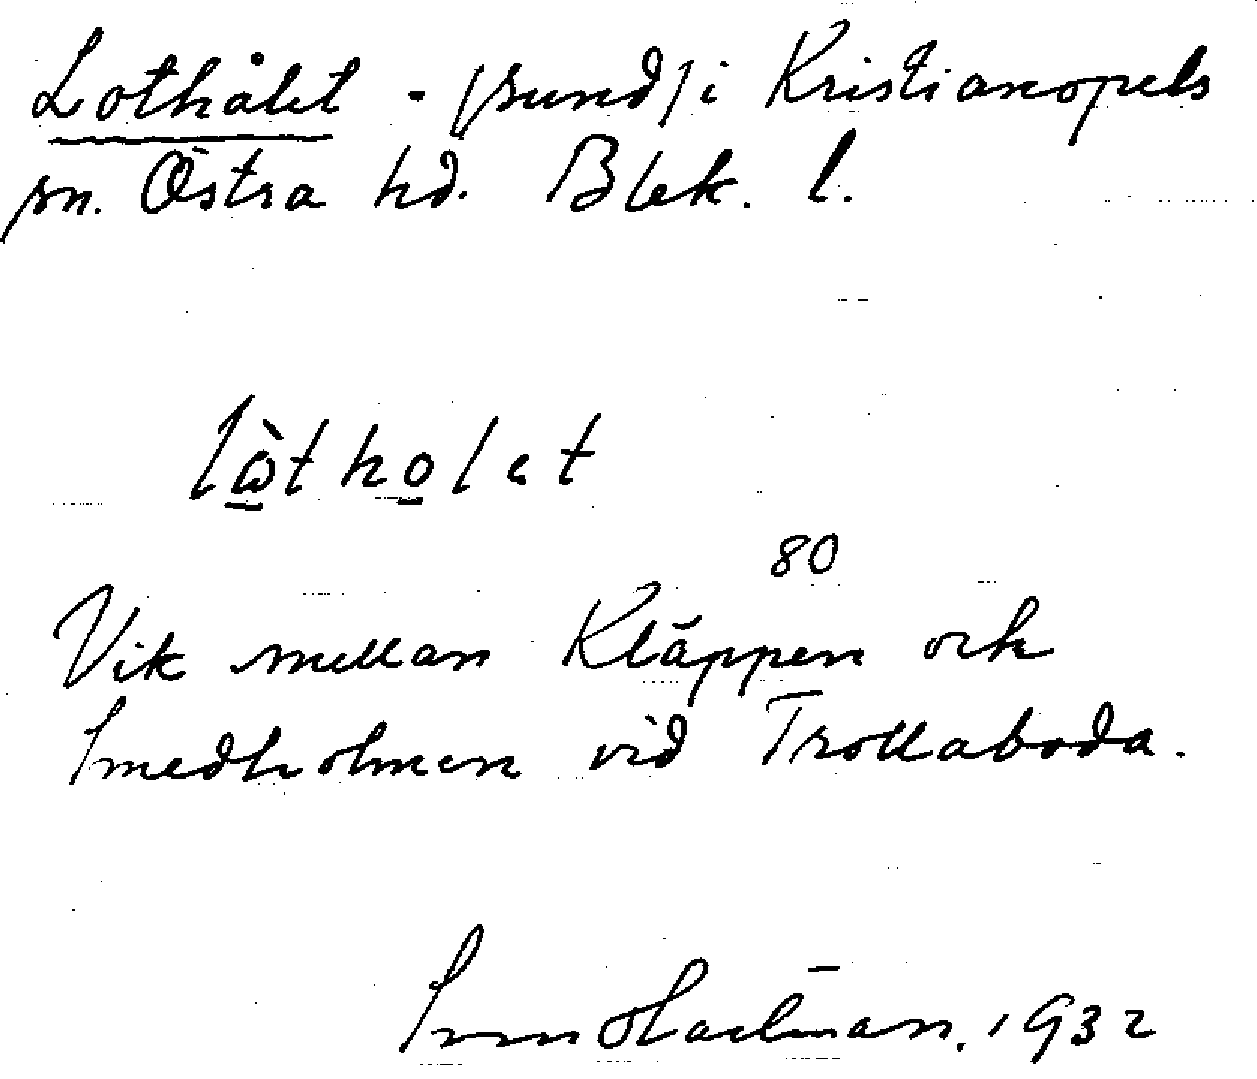 Lothålet - (sund) i Kristianopels
sn. Östra hd. Blek. l.
lò̱tho̱let
80
Vik mellan Kläppen och
Smedholmen vid Trollaboda.
Sven Hartman. 1932